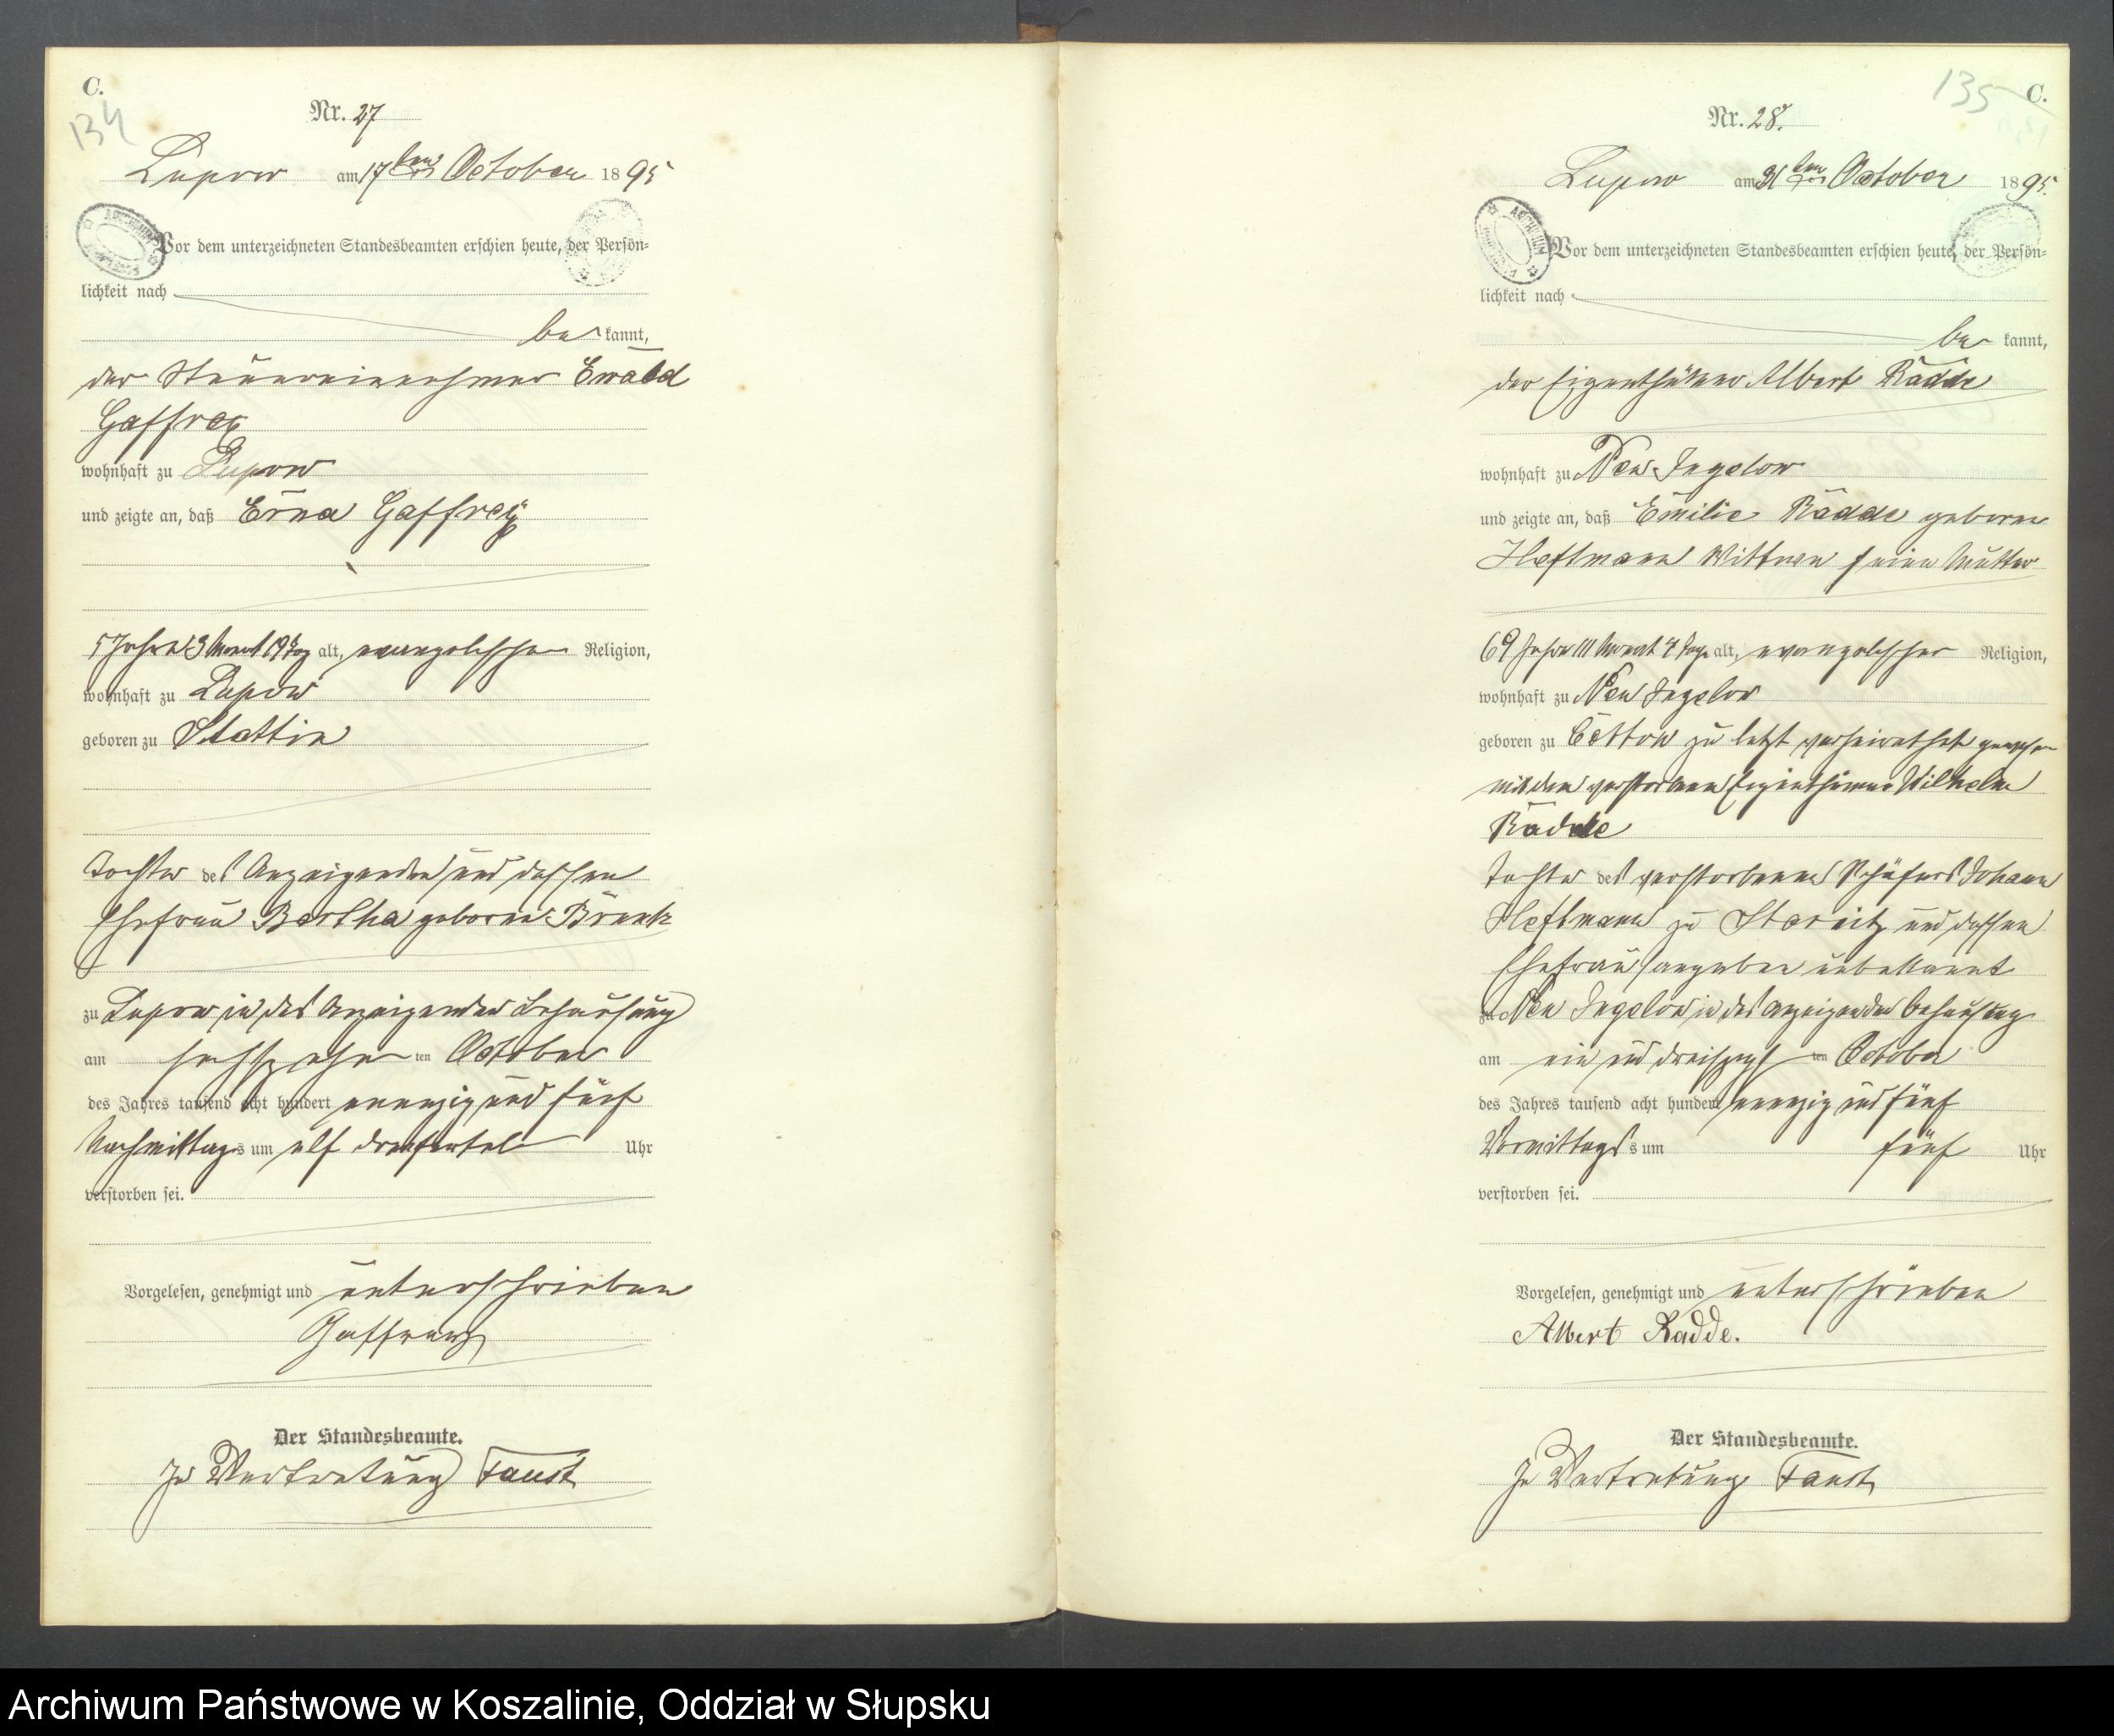 C.
134
Nr. 27
Lupow am 17ten October 1895
Vor dem unterzeichneten Standesbeamten erschien heute, der Persön-
lichkeit nach
be kannt,
der Steuereinnehmer Ewald
Gaffrey
wohnhaft zu Lupow
und zeigte an, daß Erna Gaffrey
5 Jahre 3 Monat 19 Tag alt, evangelischer Religion,
wohnhaft zu Lupow
geboren zu Stettin
Tochter des Anzeigenden und dessen
Ehefrau Bertha geborene
zu Lupow in des Anzeigenden Behausung
am sechszehn ten October
des Jahres tausend acht hundert neunzig und fünf
Nachmittags um elf dreiviertel Uhr
verstorben sei.
Vorgelesen, genehmigt und unterschrieben
Gaffrey
Der Standesbeamte.
In Vertretung Faust
135
C.
Nr. 28.
Lupow am 31ten October 1895.
Vor dem unterzeichneten Standesbeamten erschien heute, der Persön-
lichkeit nach
be kannt,
der Eigenthümer Albert Radde
wohnhaft zu Neu Jugelow
und zeigte an, daß Emilie Radde geborne
Heftmann Wittwe seine Mutter
69 Jahre 11 Monat 7 Tage alt, evangelischer Religion,
wohnhaft zu Neu Jugelow
geboren zu zu letzt verheirathet gewesen
mit dem verstorbenen Eigenthümer Wilhelm
Radde
Tochter des verstorbenen Schäfers Johann
Heftmann zu und dessen
Ehefrau angeben unbekannt
zu Neu Jugelow in des Anzeigenden Behausung
am ein und dreiszigs ten October
des Jahres tausend acht hundert neunzig und fünf
Vormittags s um fünf Uhr
verstorben sei.
Vorgelesen, genehmigt und unterschrieben
Albert Radde.
Der Standesbeamte.
In Vertretung Faust
Archiwum Państwowe w Koszalinie, Oddział w Słupsku